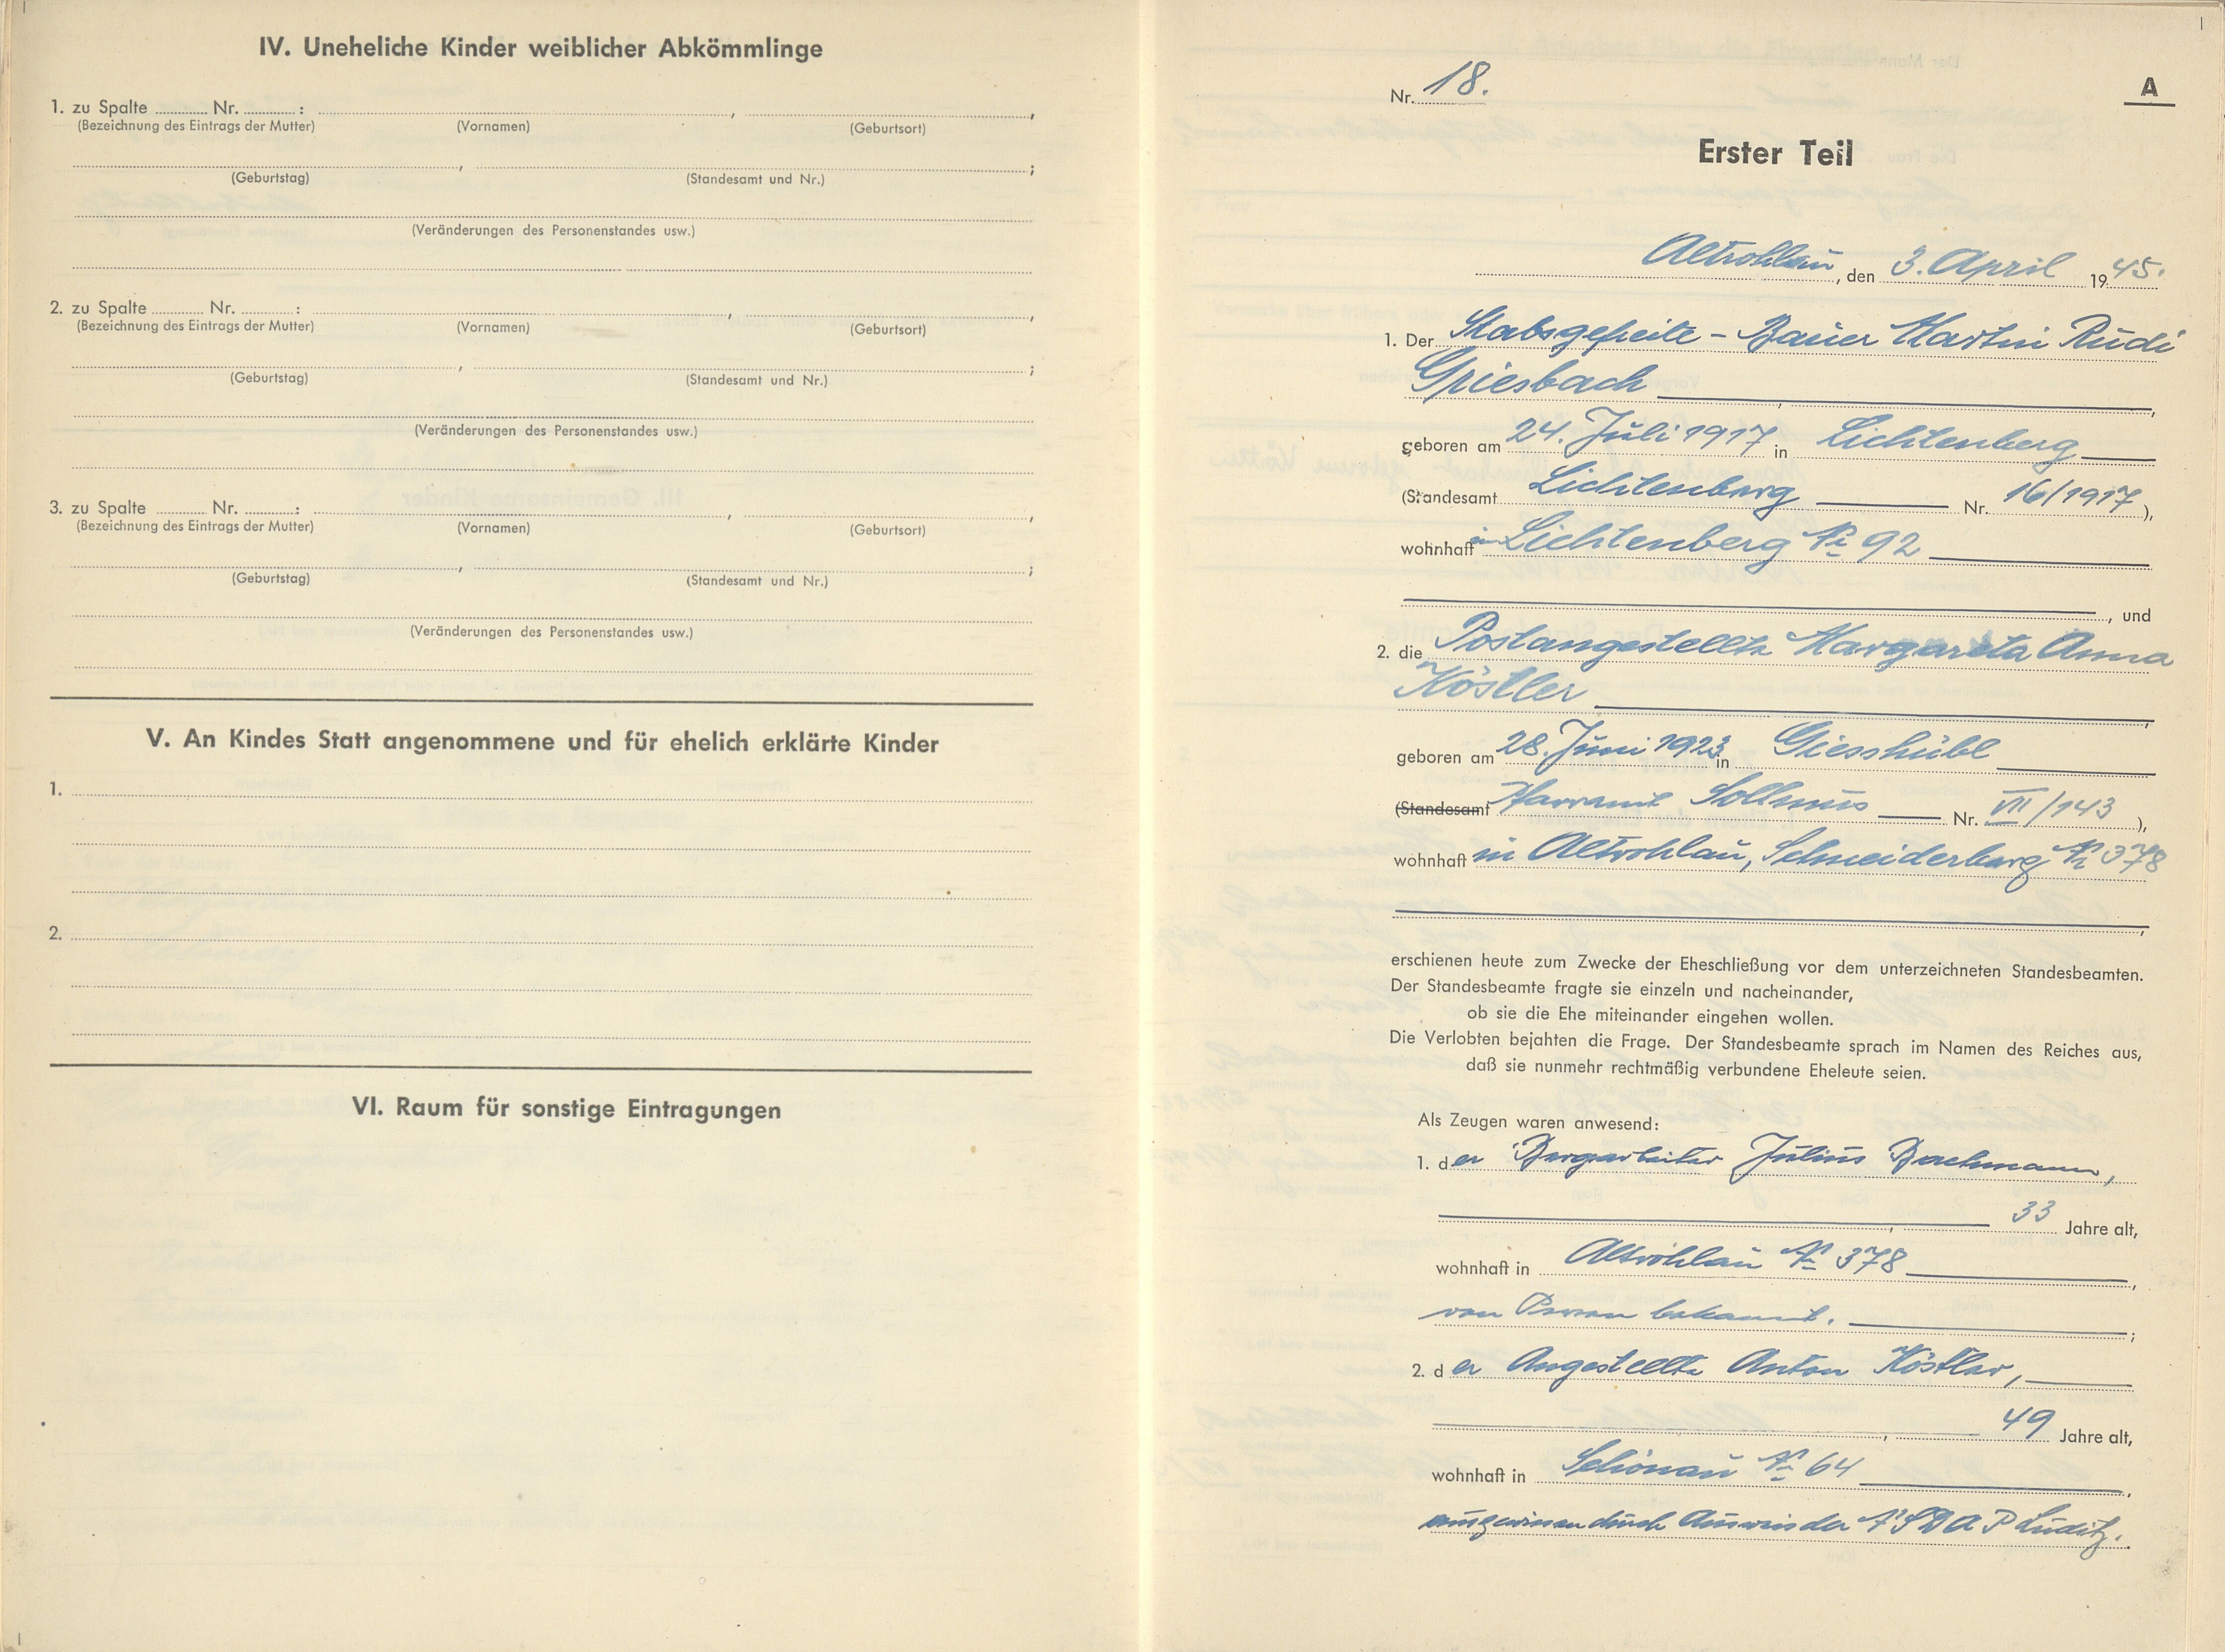 IV. Uneheliche Kinder weiblicher Abkömmlinge
1. zu Spalte ........ Nr. ........ :
(Bezeichnung des Eintrags der Mutter) (Vornamen) (Geburtsort)
(Geburtstag) (Standesamt und Nr.)
(Veränderungen des Personenstandes usw.)
2. zu Spalte ........ Nr. ........ :
(Bezeichnung des Eintrags der Mutter) (Vornamen) (Geburtsort)
(Geburtstag) (Standesamt und Nr.)
(Veränderungen des Personenstandes usw.)
3. zu Spalte ........ Nr. ........ :
(Bezeichnung des Eintrags der Mutter) (Vornamen) (Geburtsort)
(Geburtstag) (Standesamt und Nr.)
(Veränderungen des Personenstandes usw.)
V. An Kindes Statt angenommene und für ehelich erklärte Kinder
1.
2.
VI. Raum für sonstige Eintragungen
Nr. 18.
A
Erster Teil
Altrohlau, den 3. April 1945.
1. Der Stabsgefreite - Bauer Martin Rudi
Griesbach,
geboren am 24. Juli 1917 in Lichtenberg
(Standesamt Lichtenberg Nr. 16/1917),
wohnhaft in Lichtenberg Nr 92
, und
2. die Postangestellte Margareta Anna
Köstler,
geboren am 28. Juni 1923 in Giesshübl
(Standesamt Pfarramt Sollmus Nr. VII/143),
wohnhaft in Altrohlau, Schneiderberg Nr 378
,
erschienen heute zum Zwecke der Eheschließung vor dem unterzeichneten Standesbeamten.
Der Standesbeamte fragte sie einzeln und nacheinander,
ob sie die Ehe miteinander eingehen wollen.
Die Verlobten bejahten die Frage. Der Standesbeamte sprach im Namen des Reiches aus,
daß sie nunmehr rechtmäßig verbundene Eheleute seien.
Als Zeugen waren anwesend:
1. der Bergarbeiter Julius Bachmann,
33 Jahre alt,
wohnhaft in Altrohlau Nr 378,
von Person bekannt.;
2. der Angestellte Anton Köstler,
49 Jahre alt,
wohnhaft in Schönau Nr 64,
ausgewiesen durch Ausweis der NSDAP Luditz.